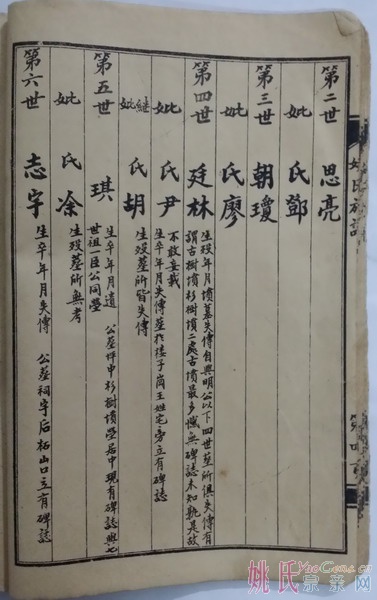 第二世 思亮
妣 氏鄧
第三世 朝瓊
妣 氏廖
第四世 廷林 生殁年月墳墓失傳自興明公以下四世墓所俱失傳有
謂古樹墳杉樹墳二處古墳最多惟無碑誌未知孰是故
不敢妄載
妣 氏尹 生卒年月失傳墓於樓子崗王姓宅旁立有碑誌
繼妣 氏胡 生殁墓所皆失傳
第五世 琪 生卒年月遺 公墓坪中杉樹墳塋居中現有碑誌與七
世祖一臣公同塋
妣 氏涂 生殁墓所無考
第六世 志宇 生卒年月失傳 公墓祠宇后栢山口立有碑誌
姚氏族譜
姚氏宗亲网